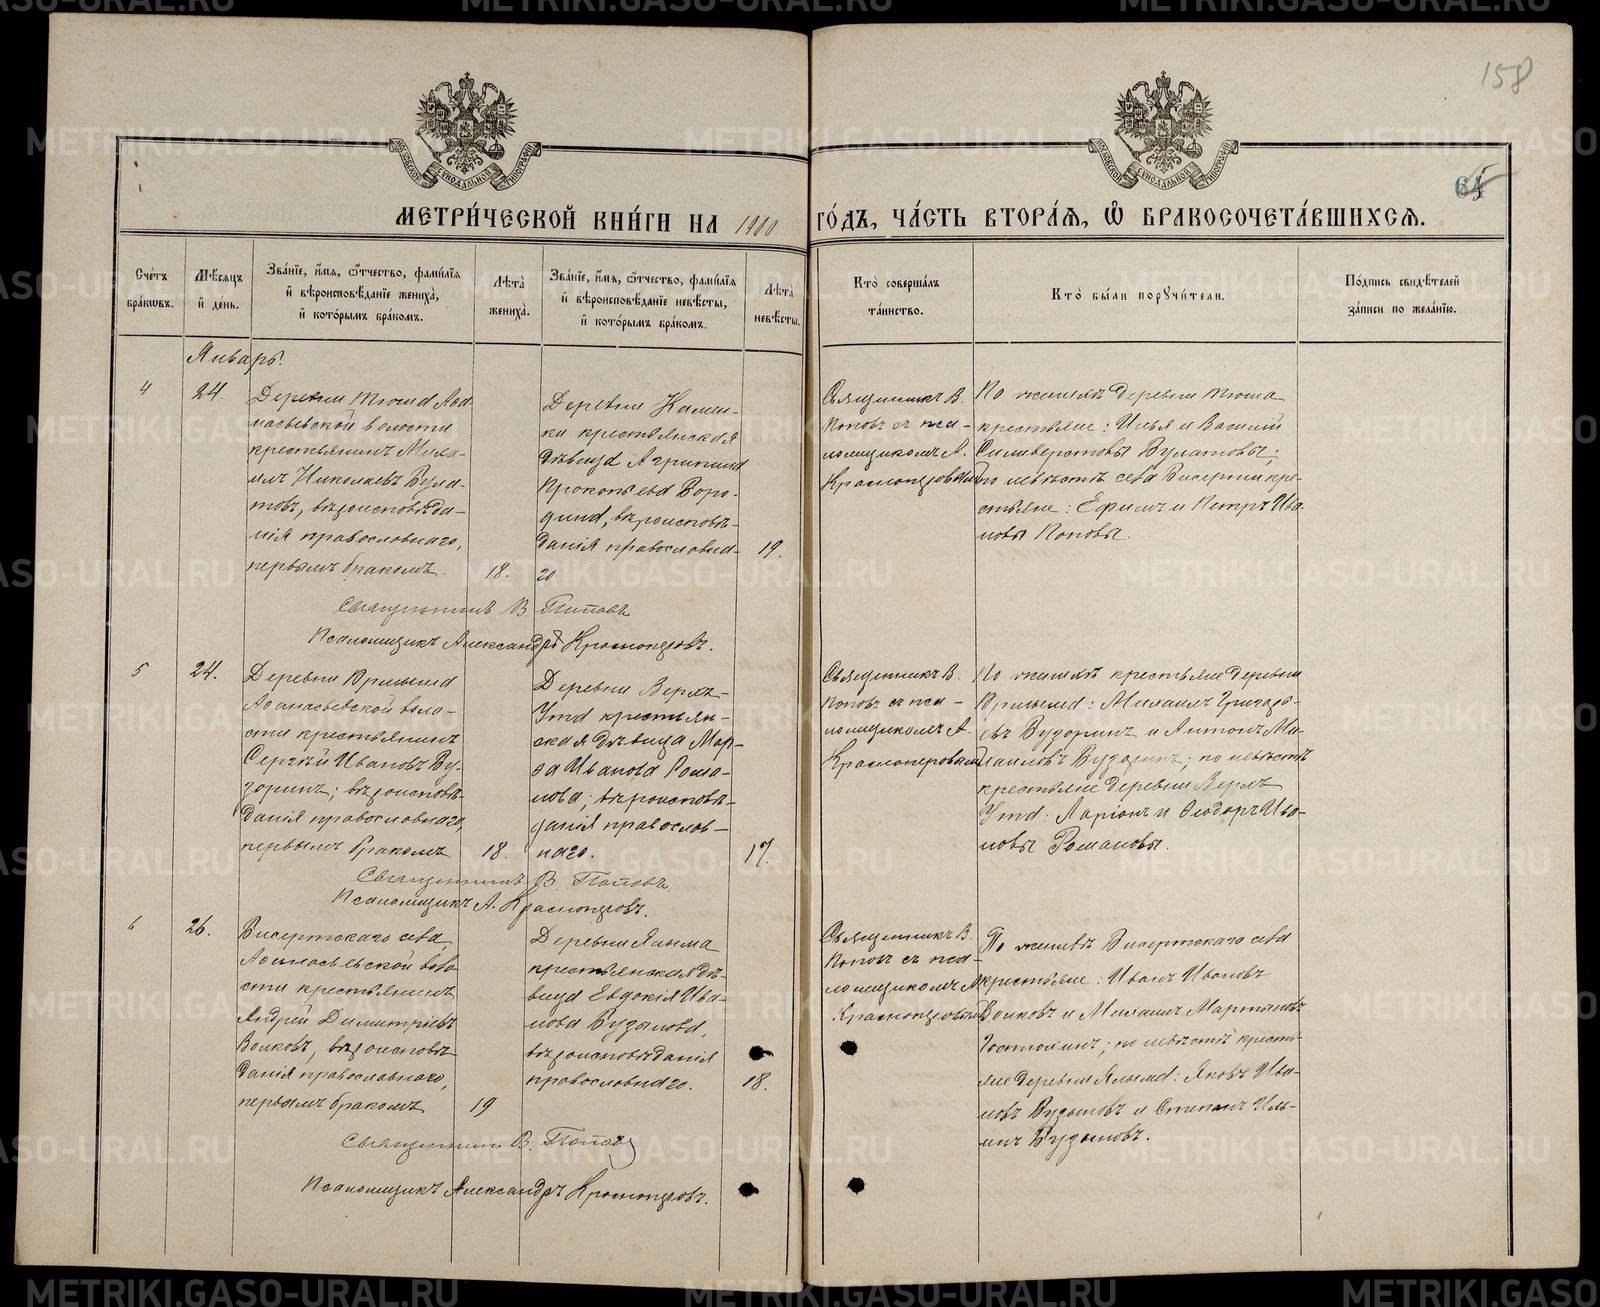 158
64
МОСКОВСКОЙ СѴНОДАЛЬНОЙ ТИПОГРАФІИ
МОСКОВСКОЙ СѴНОДАЛЬНОЙ ТИПОГРАФІИ
МЕТРИ́ЧЕСКОЙ КНИ́ГИ НА 1900 ГО́ДЪ, ЧА́СТЬ ВТОРА́Я, Ѿ БРАКОСОЧЕТА́ВШИХСЯ.
Сче́тъ бра́ковъ.
Мѣ́сяцъ и҆ де́нь.
Зва́нїе, и҆́мя, ѻ҆́тчество, фами́лїя и҆ вѣроисповѣ́данїе жениха̀, и҆ кото́рымъ бра́комъ.
Лѣта̀ жениха̀.
Зва́нїе, и҆́мя, ѻ҆́тчество, фами́лїя и҆ вѣроисповѣ́данїе невѣ́сты, и҆ кото́рымъ бра́комъ.
Лѣта̀ невѣ́сты.
Кто̀ соверша́лъ та́инство.
Кто̀ бы́ли поручи́тели.
По́дпись свидѣ́телей за́писи по жела́нїю.
Январь.
4
24.
Деревни Тюша Афа-
насьевской волости
крестьянинъ Миха-
илъ Николаевъ Була-
товъ, вѣроисповѣда-
нія православнаго,
первымъ бракомъ.
18.
Деревни Камен-
ки крестьянская
дѣвица Агрипина
Прокопьева Боро-
дина, вѣроисповѣ-
данія православна-
го
19.
Священникъ В.
Поповъ съ пса-
ломщикомъ А.
Красноперовымъ
По женихѣ деревни Тюша
крестьяне: Илья и Василій
Силиверстовы Булатовы;
по невѣстѣ села Бисерти кре-
стьяне: Ефимъ и Петръ Ива-
новы Поповы.
Священникъ В. Поповъ
Псаломщикъ Александръ Красноперовъ.
5
24.
Деревни Юрмыша
Афанасьевской воло-
сти крестьянинъ
Сергѣй Ивановъ Бу-
зоринъ; вѣроисповѣ-
данія православнаго,
первымъ бракомъ
18.
Деревни Верхъ-
Ута крестьян-
ская дѣвица Мар-
фа Иванова Рома-
нова; вѣроисповѣ-
данія православ-
наго.
17.
Священникъ В.
Поповъ съ пса-
ломщикомъ А.
Красноперовымъ
По женихѣ крестьяне деревни
Юрмыша: Михаилъ Григорь-
евъ Бузоринъ и Антонъ Ми-
хаиловъ Бузоринъ; по невѣстѣ
крестьяне деревни Верхъ
Ута: Ларіонъ и Ѳеодоръ Ива-
новы Романовы.
Священникъ В. Поповъ.
Псаломщикъ А. Красноперовъ.
6
26.
Бисертскаго села
Афанасьевской воло-
сти крестьянинъ
Андрей Димитріевъ
Волковъ, вѣроисповѣ-
данія православнаго,
первымъ бракомъ
19
Деревни Ялыма
крестьянская дѣ-
вица Евдокія Ива-
нова Бузмакова,
вѣроисповѣданія
православнаго.
18.
Священникъ В.
Поповъ съ пса-
ломщикомъ А.
Красноперовымъ
По женихѣ Бисертскаго села
крестьяне: Иванъ Ивановъ
Волковъ и Михаилъ Мартыновъ
по невѣстѣ кресть-
яне деревни Ялыма: Яковъ Ива-
новъ и Степанъ Иль-
инъ
Священникъ В. Поповъ
Псаломщикъ Александръ Красноперовъ.
METRIKI.GASO-URAL.RU